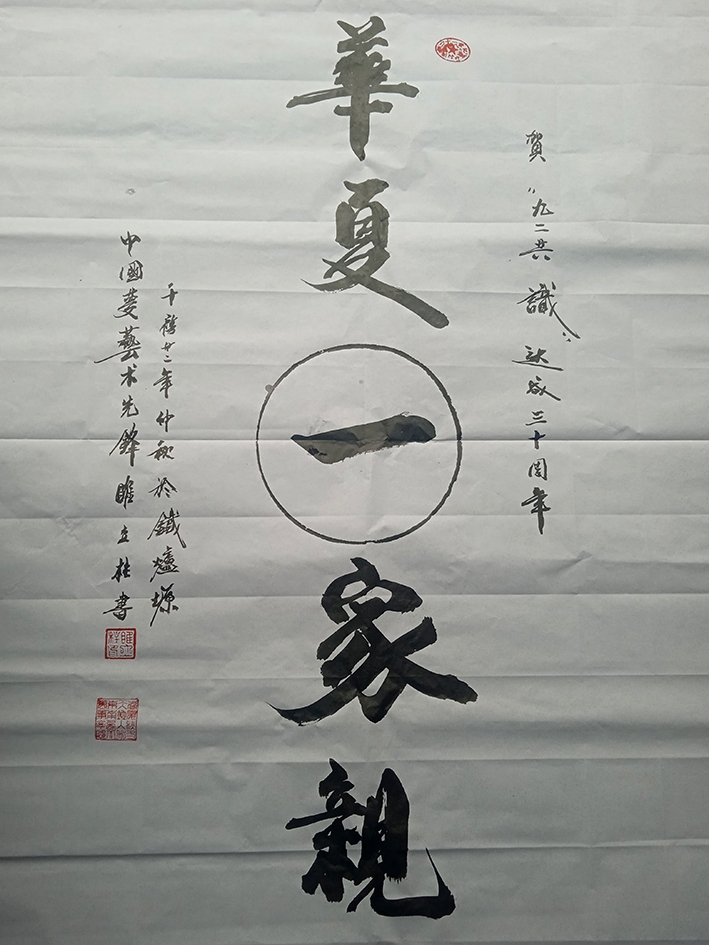 賀"九二共識"達成三十周年
華夏一家親
千禧廿二年仲秋於鐵爐塬
中國夢藝术先鋒睢立柱書